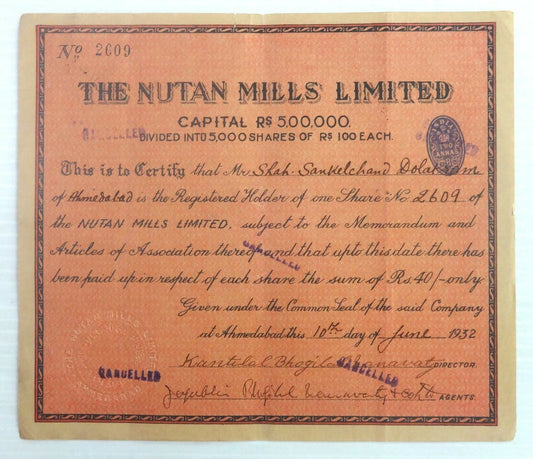 No 2609
THE NUTAN MILLS LIMITED
CAPITAL RS 5,00,000.
DIVIDED INTO 5,000 SHARES OF RS 100 EACH.
CANCELLED
TWO ANNAS
This is to Certify that Mr Shah Sankelchand
of Ahmedabad is the Registered Holder of one Share No 2609 of
the NUTAN MILLS LIMITED, subject to the Memorandum and
Articles of Association thereof and that upto this date there has
been paid up in respect of each share the sum of Rs 40/- only.
CANCELLED
Given under the Common Seal of the said Company
at Ahmedabad this 10th day of June 1932
Kantilal Bhogilal Nanavaty DIRECTOR.
CANCELLED
CANCELLED
AGENTS.
THE NUTAN MILLS LIMITED